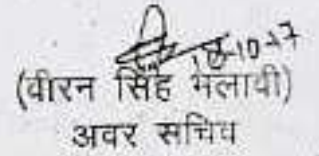 18-10-17
(वीरन सिंह भलावी)
अवर सचिव